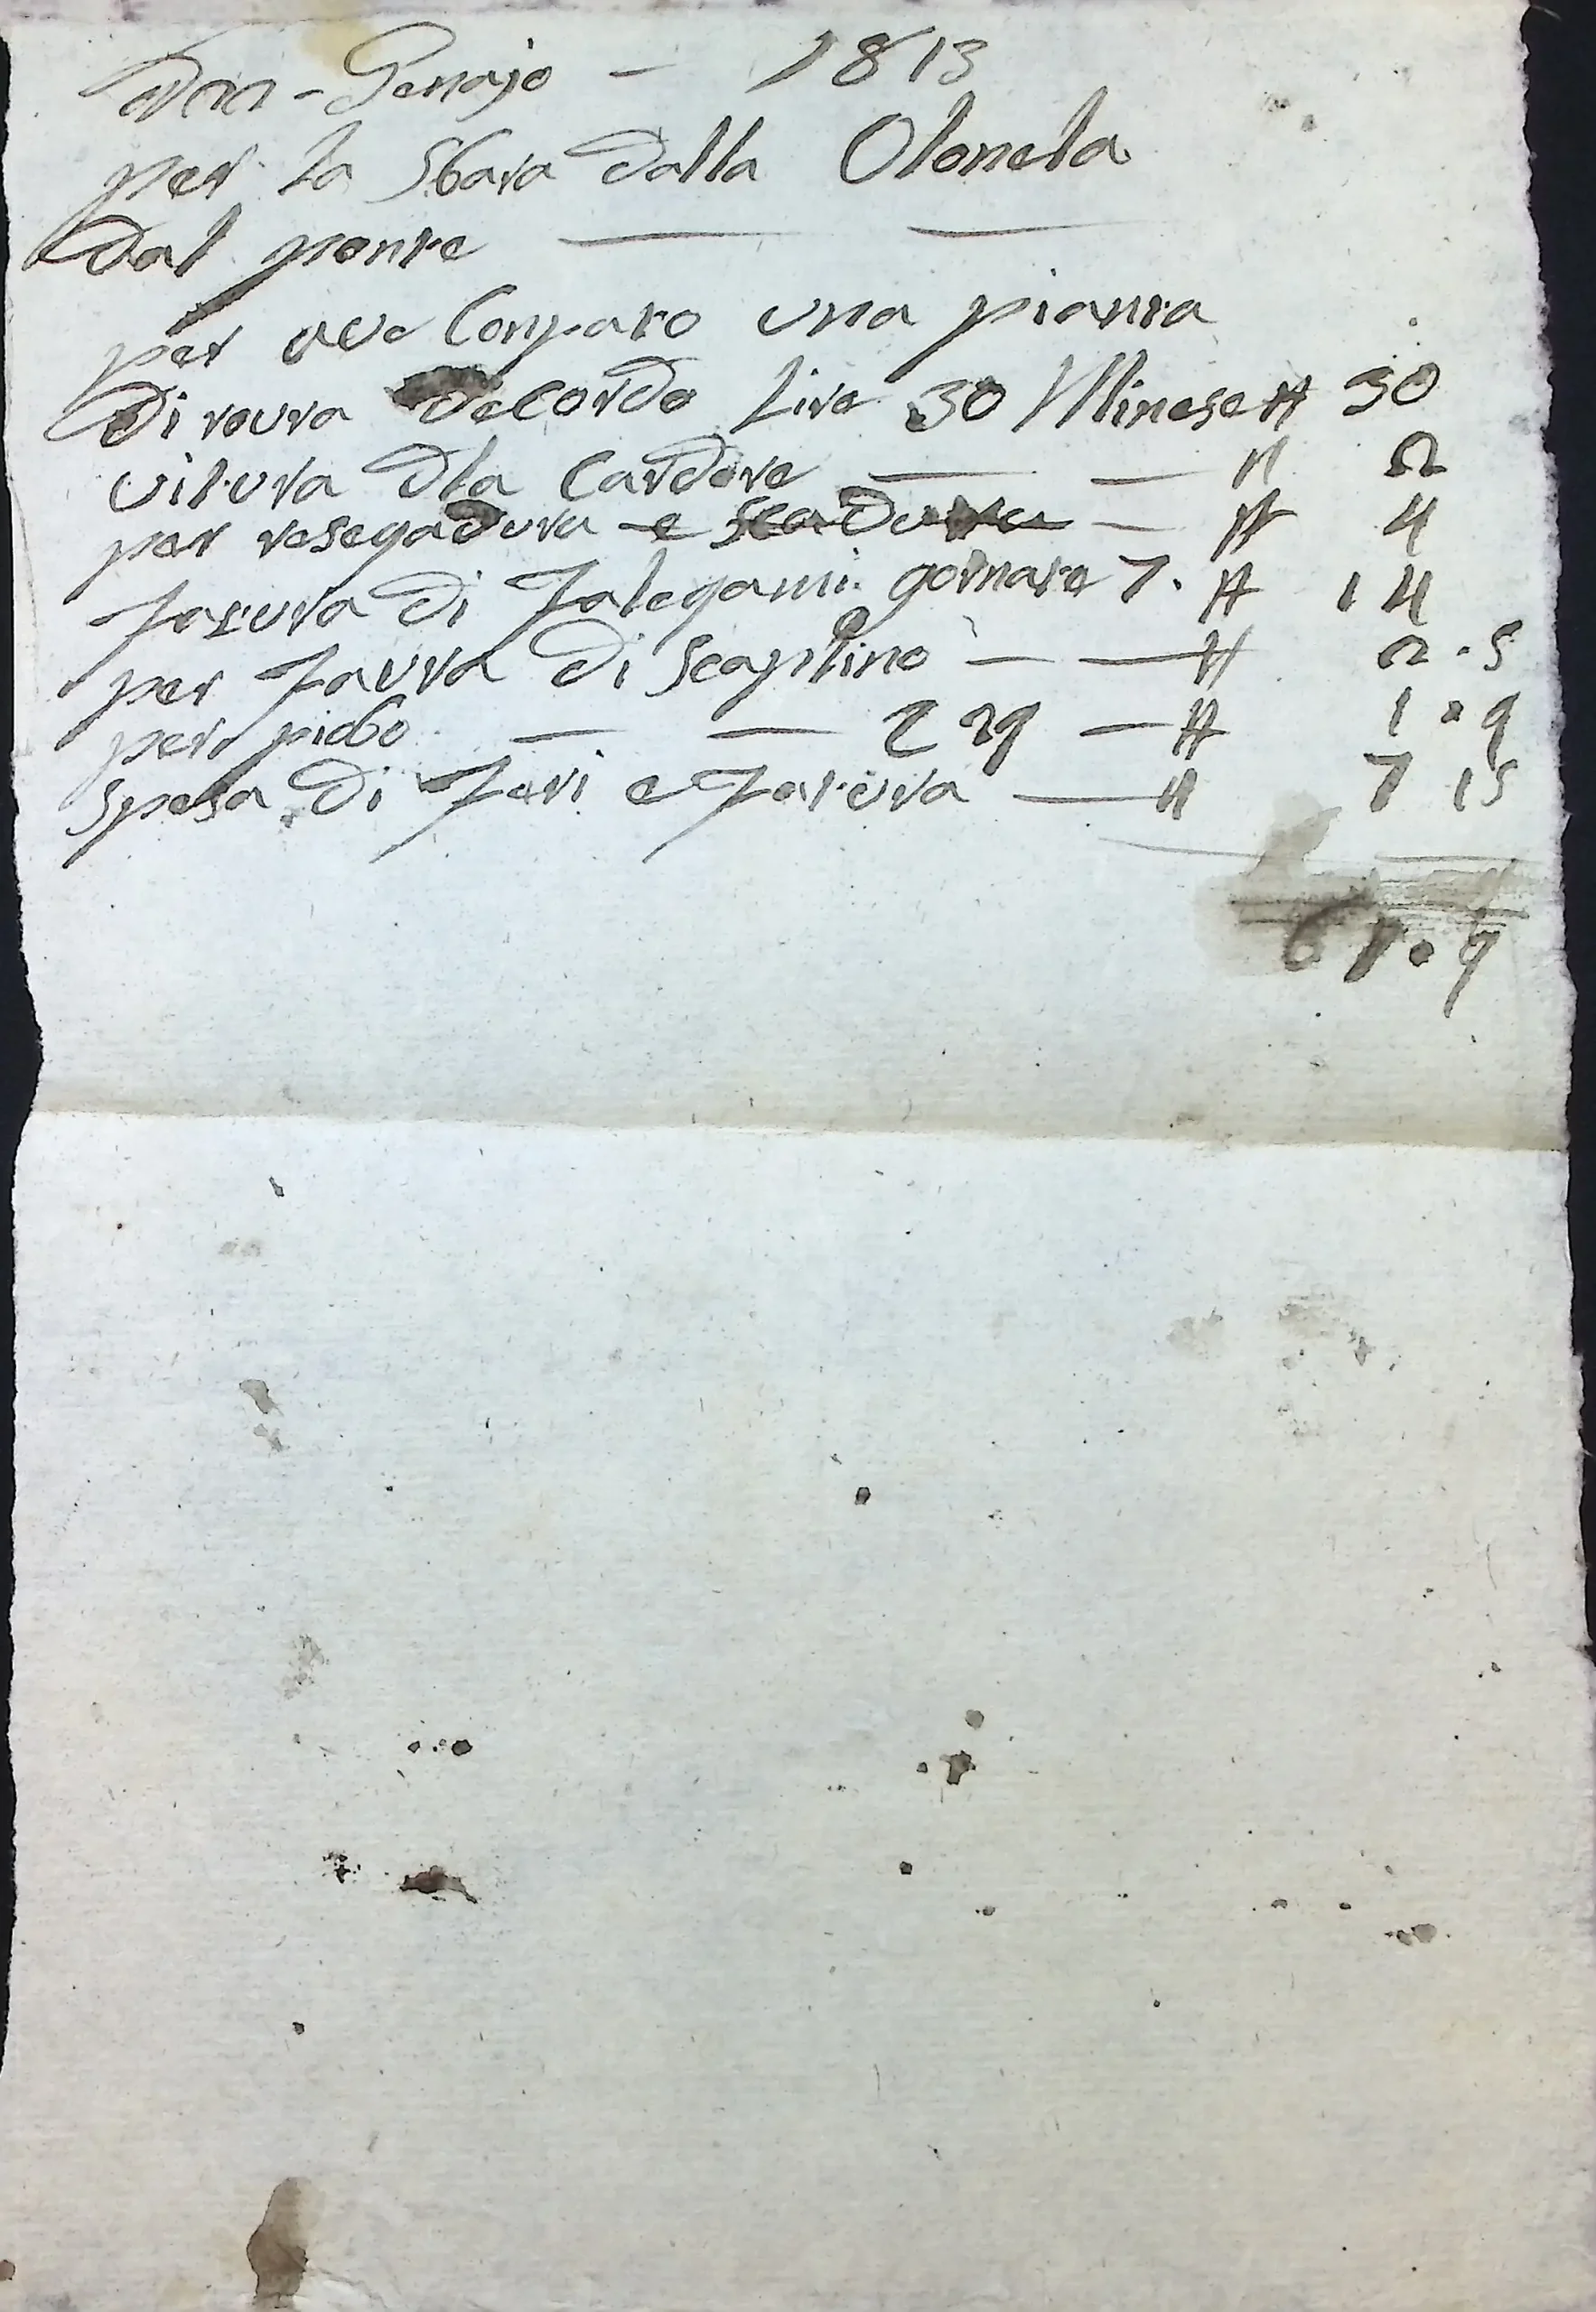 Genajo — 1813
per la Sbara dalla Oloneta
dal ponte — —
per ave Conparo una pianta
di roura decordo Lire 30 Milinese # 30
vitura dla Cardore — — # 2
per resegadura e scadura — # 4
fatura di falegami gornate 7. # 14
per fatura di Scaplino — — # 2 . 5
per piobo — — 29 — # 1 . 9
spesa di feri e fatura — # 7 15
61 . 9